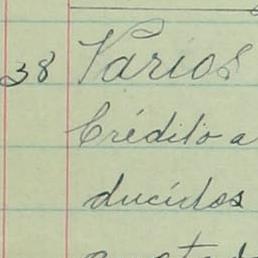 38 Varios
Crédito a
ducidos